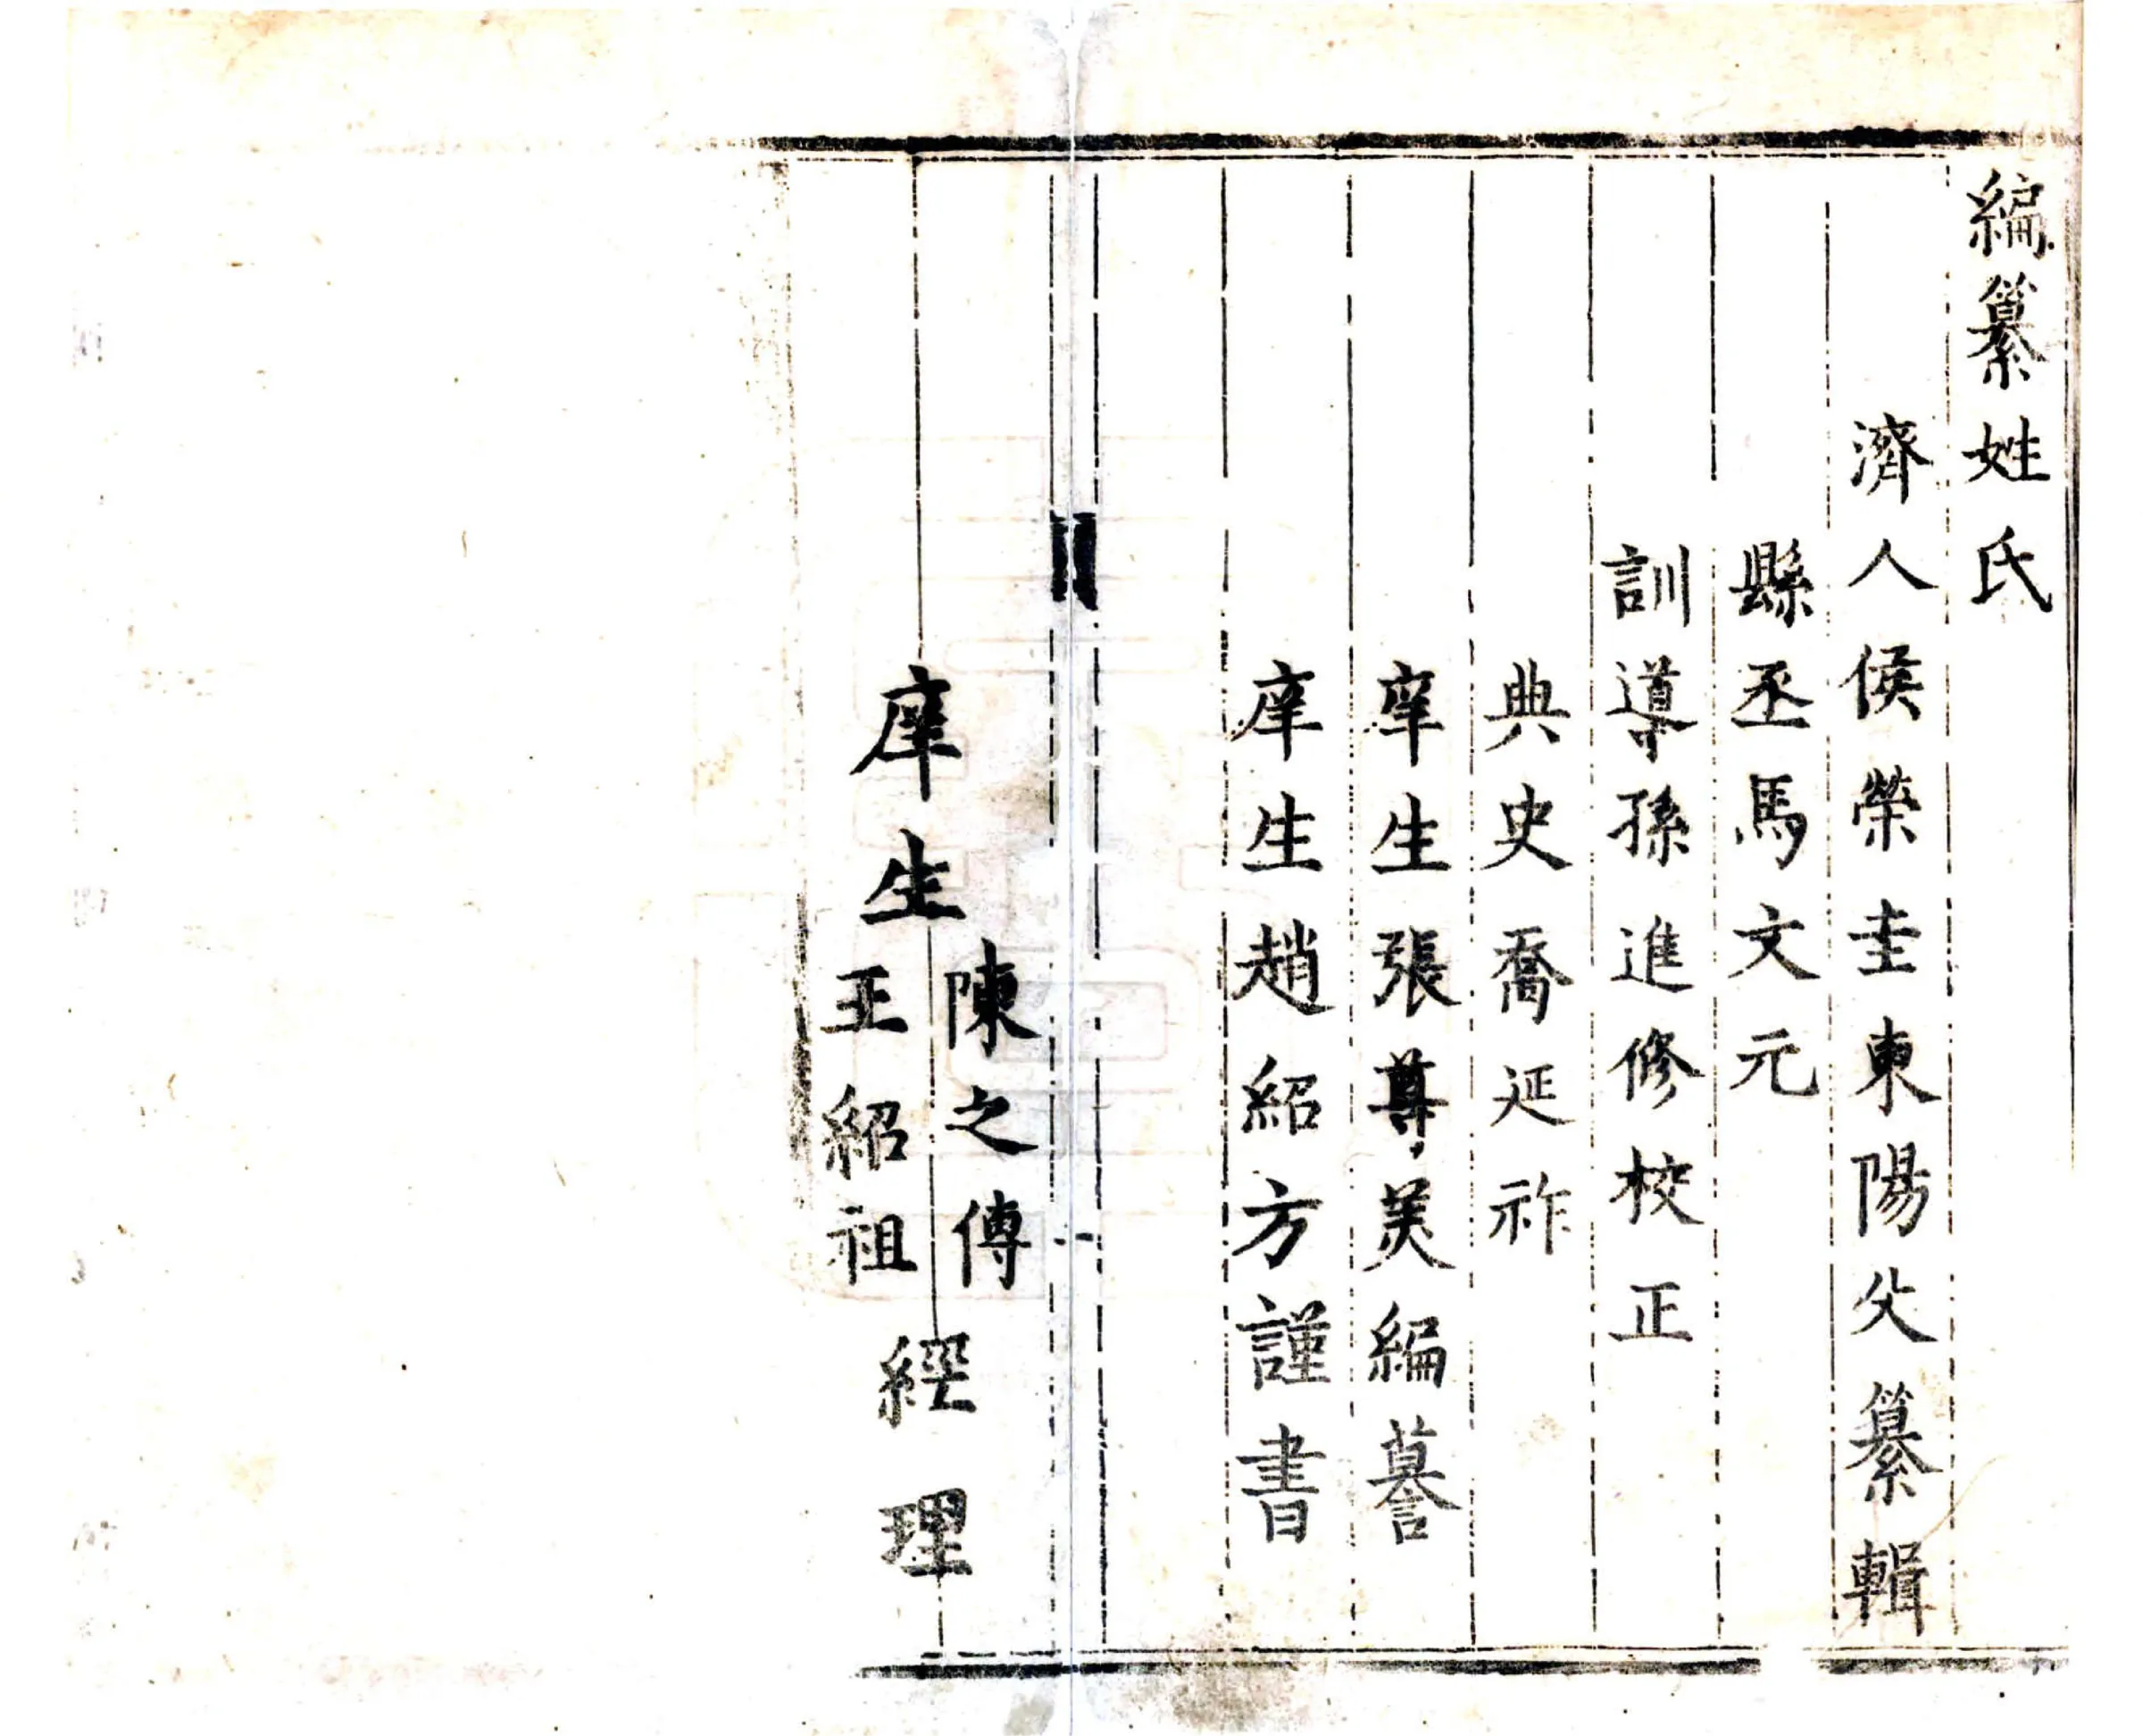 編纂姓氏
濟人侯榮圭東陽父纂輯
縣丞馬文元
訓導孫進修校正
典史喬延祚
庠生張尊美編謄
庠生趙紹方謹書
庠生
陳之傳
王紹祖
經理